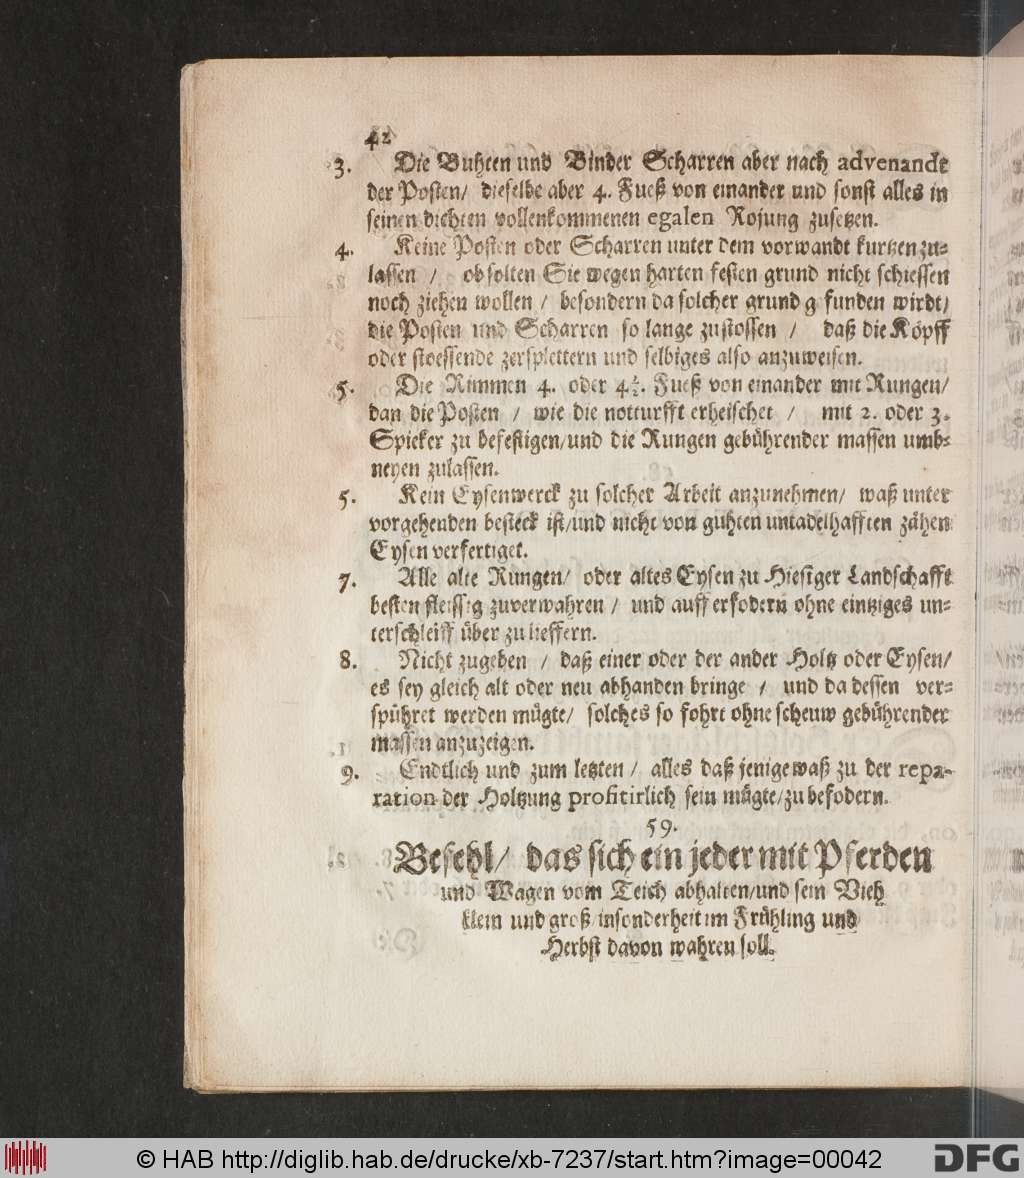 42
3. Die Buhten und Binder Scharren aber nach advenandt
der Posten/ dieselbe aber 4. Fueß von einander und sonst alles in
seinen dichten vollenkommenen egalen Rojung zusetzen.
4. Keine Posten oder Scharren unter dem vorwandt kurtzen zu-
lassen / ob solten Sie wegen harten festen grund nicht schiessen
noch ziehen wollen / besondern da solcher grund g funden wirdt/
die Posten und Scharren so lange zustossen / daß die Köpff
oder stoessende zersplettern und selbiges also anzuweisen.
5. Die Rimmen 4. oder 4½. Fueß von einander mit Rungen/
dan die Posten / wie die notturfft erheischet / mit 2. oder 3.
Spieker zu befestigen/und die Rungen gebührender massen umb-
neyen zulassen.
5. Kein Eysenwerck zu solcher Arbeit anzunehmen/ waß unter
vorgehenden besteck ist/und nicht von guhten untadelhafften zähen
Eysen verfertiget.
7. Alle alte Rungen/ oder altes Eysen zu Hiesiger Landschafft
besten fleissig zuverwahren / und auff erfodern ohne eintziges un-
terschleiff über zu lieffern.
8. Nicht zugeben / daß einer oder der ander Holtz oder Eysen/
es sey gleich alt oder neu abhanden bringe / und da dessen ver-
spühret werden mügte/ solches so fohrt ohne scheuw gebührender
massen anzuzeigen.
9. Endtlich und zum letzten / alles daß jenige waß zu der repa-
ration der Holtzung profitirlich sein mügte/zu befodern.
59.
Befehl/ das sich ein jeder mit Pferden
und Wagen vom Teich abhalten/und sein Vieh
klein und groß/insonderheit im Frühling und
Herbst davon wahren soll.
© HAB http://diglib.hab.de/drucke/xb-7237/start.htm?image=00042
DFG